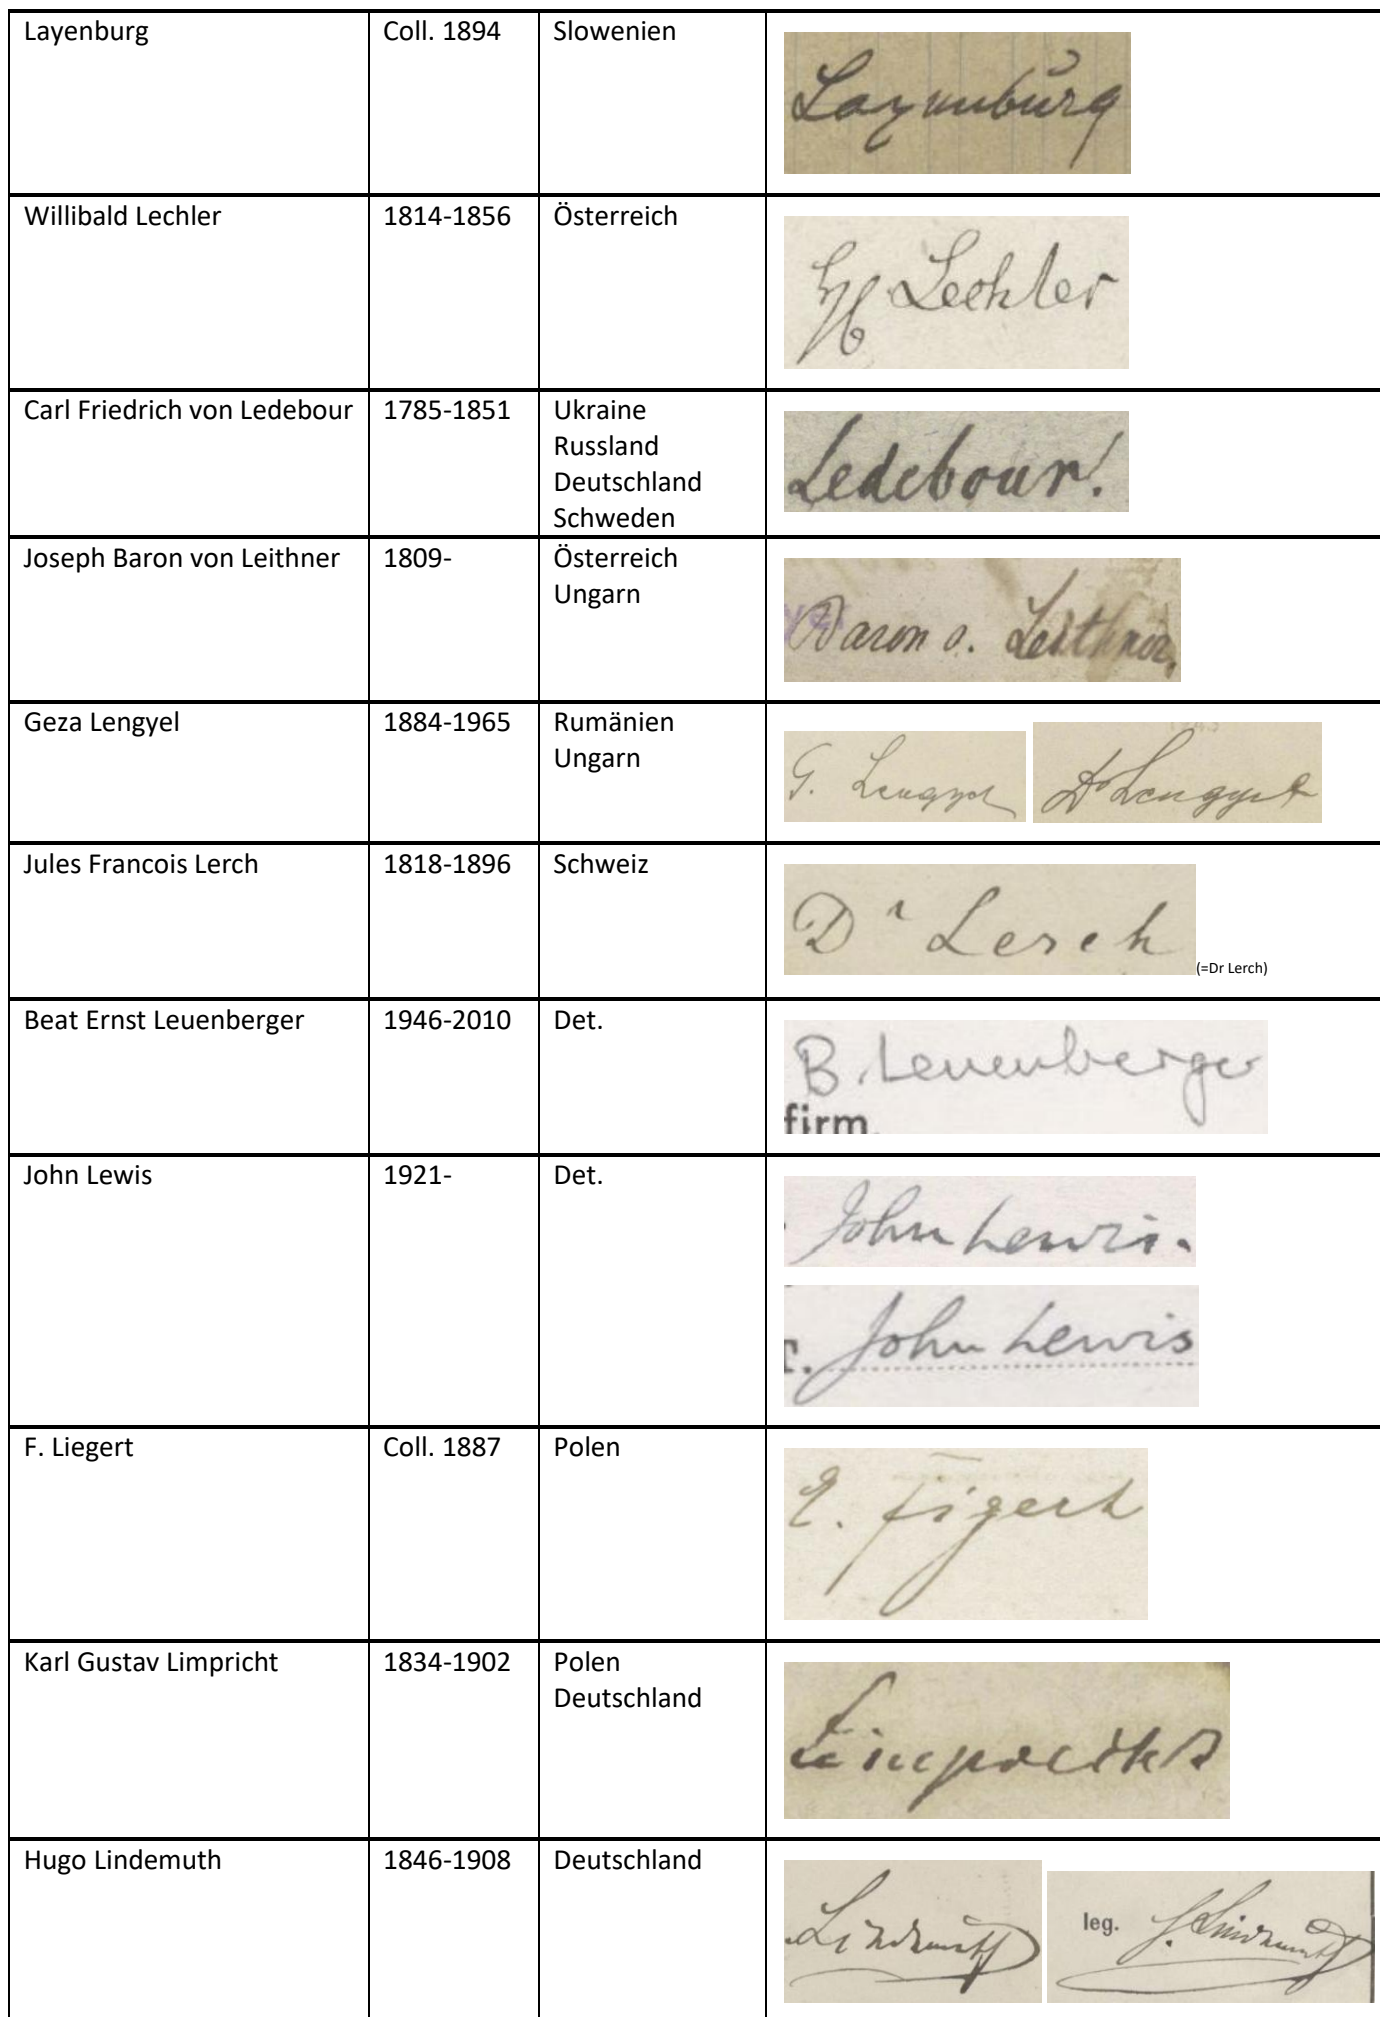 Layenburg Coll. 1894 Slowenien Layenburg
Willibald Lechler 1814-1856 Österreich W Lechler
Carl Friedrich von Ledebour 1785-1851 Ukraine Ledebour.
Russland
Deutschland
Schweden
Joseph Baron von Leithner 1809- Österreich Baron v. Leithner.
Ungarn
Geza Lengyel 1884-1965 Rumänien G. Lengyel Dr Lengyel
Ungarn
Jules Francois Lerch 1818-1896 Schweiz Dr Lerch
(=Dr Lerch)
Beat Ernst Leuenberger 1946-2010 Det. B. Leuenberger
firm.
John Lewis 1921- Det. John Lewis.
John Lewis
F. Liegert Coll. 1887 Polen E. Figert
Karl Gustav Limpricht 1834-1902 Polen Limpricht
Deutschland
Hugo Lindemuth 1846-1908 Deutschland Lindemuth leg. H. Lindemuth